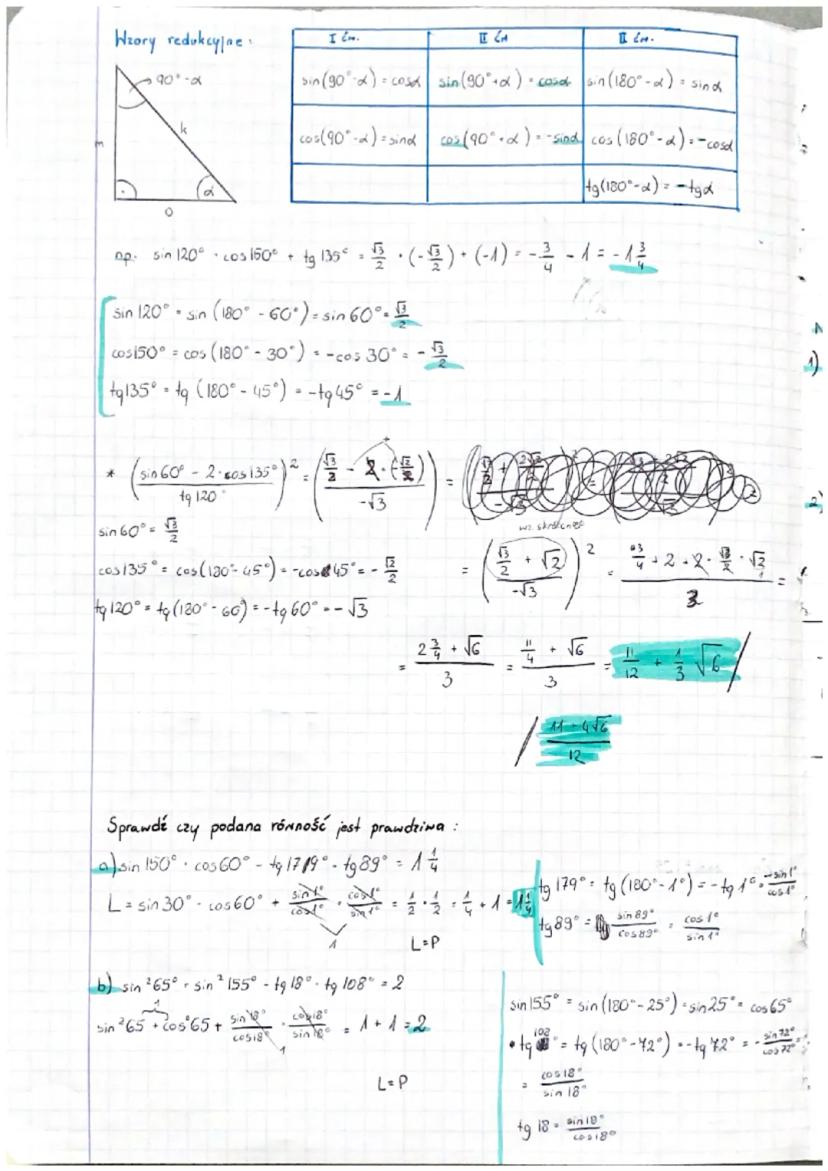 Wzory redukcyjne:
I ćw. II ćw. II ćw.
90°-α
sin(90°-α) = cosα sin(90°+α) = cosα sin(180°-α) = sinα
k
m
cos(90°-α) = sinα cos(90°+α) = -sinα cos(180°-α) = -cosα
α
tg(180°-α) = -tgα
o
np. sin 120° · cos 150° + tg 135° = √3/2 · (-√3/2) + (-1) = -3/4 - 1 = -1 3/4
sin 120° = sin (180° - 60°) = sin 60° = √3/2
cos150° = cos (180° - 30°) = -cos 30° = -√3/2
tg135° = tg (180° - 45°) = -tg 45° = -1
* ((sin 60° - 2·cos 135°)/(tg 120°))² = ((√3/2 - 2·(-√2/2))/(-√3)) =
wz. skróconeg
sin 60° = √3/2
cos 135° = cos(180° - 45°) = -cos 45° = -√2/2
= ((√3/2 + √2)/(-√3))² = (3/4 + 2 + 2·√3/2·√2)/3 =
tg 120° = tg (180° - 60°) = -tg 60° = -√3
= (2 3/4 + √6)/3 = (11/4 + √6)/3 = 11/12 + 1/3 √6 /
/ (11+4√6)/12
Sprawdź czy podana równość jest prawdziwa:
a) sin 150° · cos 60° - tg 179° · tg 89° = 1 1/4
L = sin 30° · cos 60° + sin 1°/cos 1° · cos 1°/sin 1° = 1/2 · 1/2 = 1/4 + 1 = 1 1/4
1
L=P
tg 179° = tg (180° - 1°) = -tg 1° = -sin 1°/cos 1°
tg 89° = sin 89°/cos 89° = cos 1°/sin 1°
b) sin²65° + sin²155° - tg 18° · tg 108° = 2
1
sin²65 + cos²65 + sin 18°/cos 18° · cos 18°/sin 18° = 1 + 1 = 2
1
L=P
sin 155° = sin (180° - 25°) = sin 25° = cos 65°
• tg 108° = tg (180° - 72°) = -tg 72° = -sin 72°/cos 72° =
= cos 18°/sin 18°
tg 18 = sin 18°/cos 18°
1)
2)